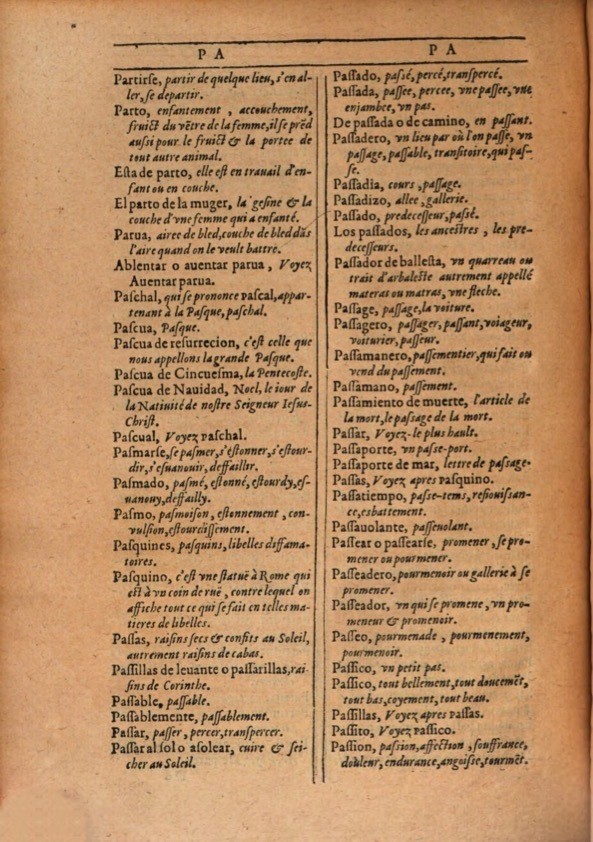 P A
Partirſe, partir de quelque lieu, s'en al-
ler, ſe departir.
Parto, enfantement, accouchement,
fruict du vẽtre de la femme, il ſe prẽd
auſsi pour le fruict & la portee de
tout autre animal.
Eſta de parto, elle eſt en trauail d'en-
fant ou en couche.
El parto de la muger, la geſine & la
couche d'vne femme qui a enfanté.
Parua, airee de bled, couche de bled dãs
l'aire quand on le veult battre.
Ablentar o auentar parua, Voyez
Auentar parua.
Paſchal, qui ſe prononce paſcal, appar-
tenant à la Paſque, paſchal.
Paſcua, Paſque.
Paſcua de reſurrecion, c'eſt celle que
nous appellons la grande Paſque.
Paſcua de Cincueſma, la Pentecoſte.
Paſcua de Nauidad, Noel, le iour de
la Natiuité de noſtre Seigneur Ieſus-
Chriſt.
Paſcual, Voyez paſchal.
Paſmarſe, ſe paſmer, s'eſtonner, s'eſtour-
dir, s'eſuanouir, deffaillir.
Paſmado, paſmé, eſtonné, eſtourdy, eſ-
uanouy, deffailly.
Paſmo, paſmoiſon, eſtonnement, con-
vulſion, eſtourdiſſement.
Paſquines, paſquins, libelles diffama-
toires.
Paſquino, c'eſt vne ſtatuë à Rome qui
eſt à vn coin de ruë, contre lequel on
affiche tout ce qui ſe fait en telles ma-
tieres de libelles.
Paſſas, raiſins ſecs & confits au Soleil,
autrement raiſins de cabas.
Paſſillas de leuante o paſſarillas, rai-
ſins de Corinthe.
Paſſable, paſſable.
Paſſablemente, paſſablement.
Paſſar, paſſer, percer, tranſpercer.
Paſſar al ſol o aſolear, cuire & ſei-
cher au Soleil.
P A
Paſſado, paſſé, percé, tranſpercé.
Paſſada, paſſee, percee, vne paſſee, vne
enjambee, vn pas.
De paſſada o de camino, en paſſant.
Paſſadero, vn lieu par où l'on paſſe, vn
paſſage, paſſable, tranſitoire, qui paſ-
ſe.
Paſſadia, cours, paſſage.
Paſſadizo, allee, gallerie.
Paſſado, predeceſſeur, paſſé.
Los paſſados, les anceſtres, les pre-
deceſſeurs.
Paſſador de balleſta, vn quarreau ou
trait d'arbaleſte autrement appellé
materas ou matras, vne fleche.
Paſſage, paſſage, la voiture.
Paſſagero, paſſager, paſſant, voiageur,
voiturier, paſſeur.
Paſſamanero, paſſementier, qui fait ou
vend du paſſement.
Paſſamano, paſſement.
Paſſamiento de muerte, l'article de
la mort, le paſſage de la mort.
Paſſar, Voyez-le plus hault.
Paſſaporte, vn paſſe-port.
Paſſaporte de mar, lettre de paſſage.
Paſſas, Voyez apres Paſquino.
Paſſatiempo, paſſe-tems, reſiouiſſan-
ce, esbattement.
Paſſauolante, paſſeuolant.
Paſſear o paſſearſe, promener, ſe pro-
mener ou pourmener.
Paſſeadero, pourmenoir ou gallerie à ſe
promener.
Paſſeador, vn qui ſe promene, vn pro-
meneur & promenoir.
Paſſeo, pourmenade, pourmenement,
pourmenoir.
Paſſico, vn petit pas.
Paſſico, tout bellement, tout doucemẽt,
tout bas, coyement, tout beau.
Paſſillas, Voyez apres Paſſas.
Paſſito, Voyez Paſſico.
Paſsion, paſsion, affection, ſouffrance,
douleur, endurance, angoiſſe, tourmẽt.